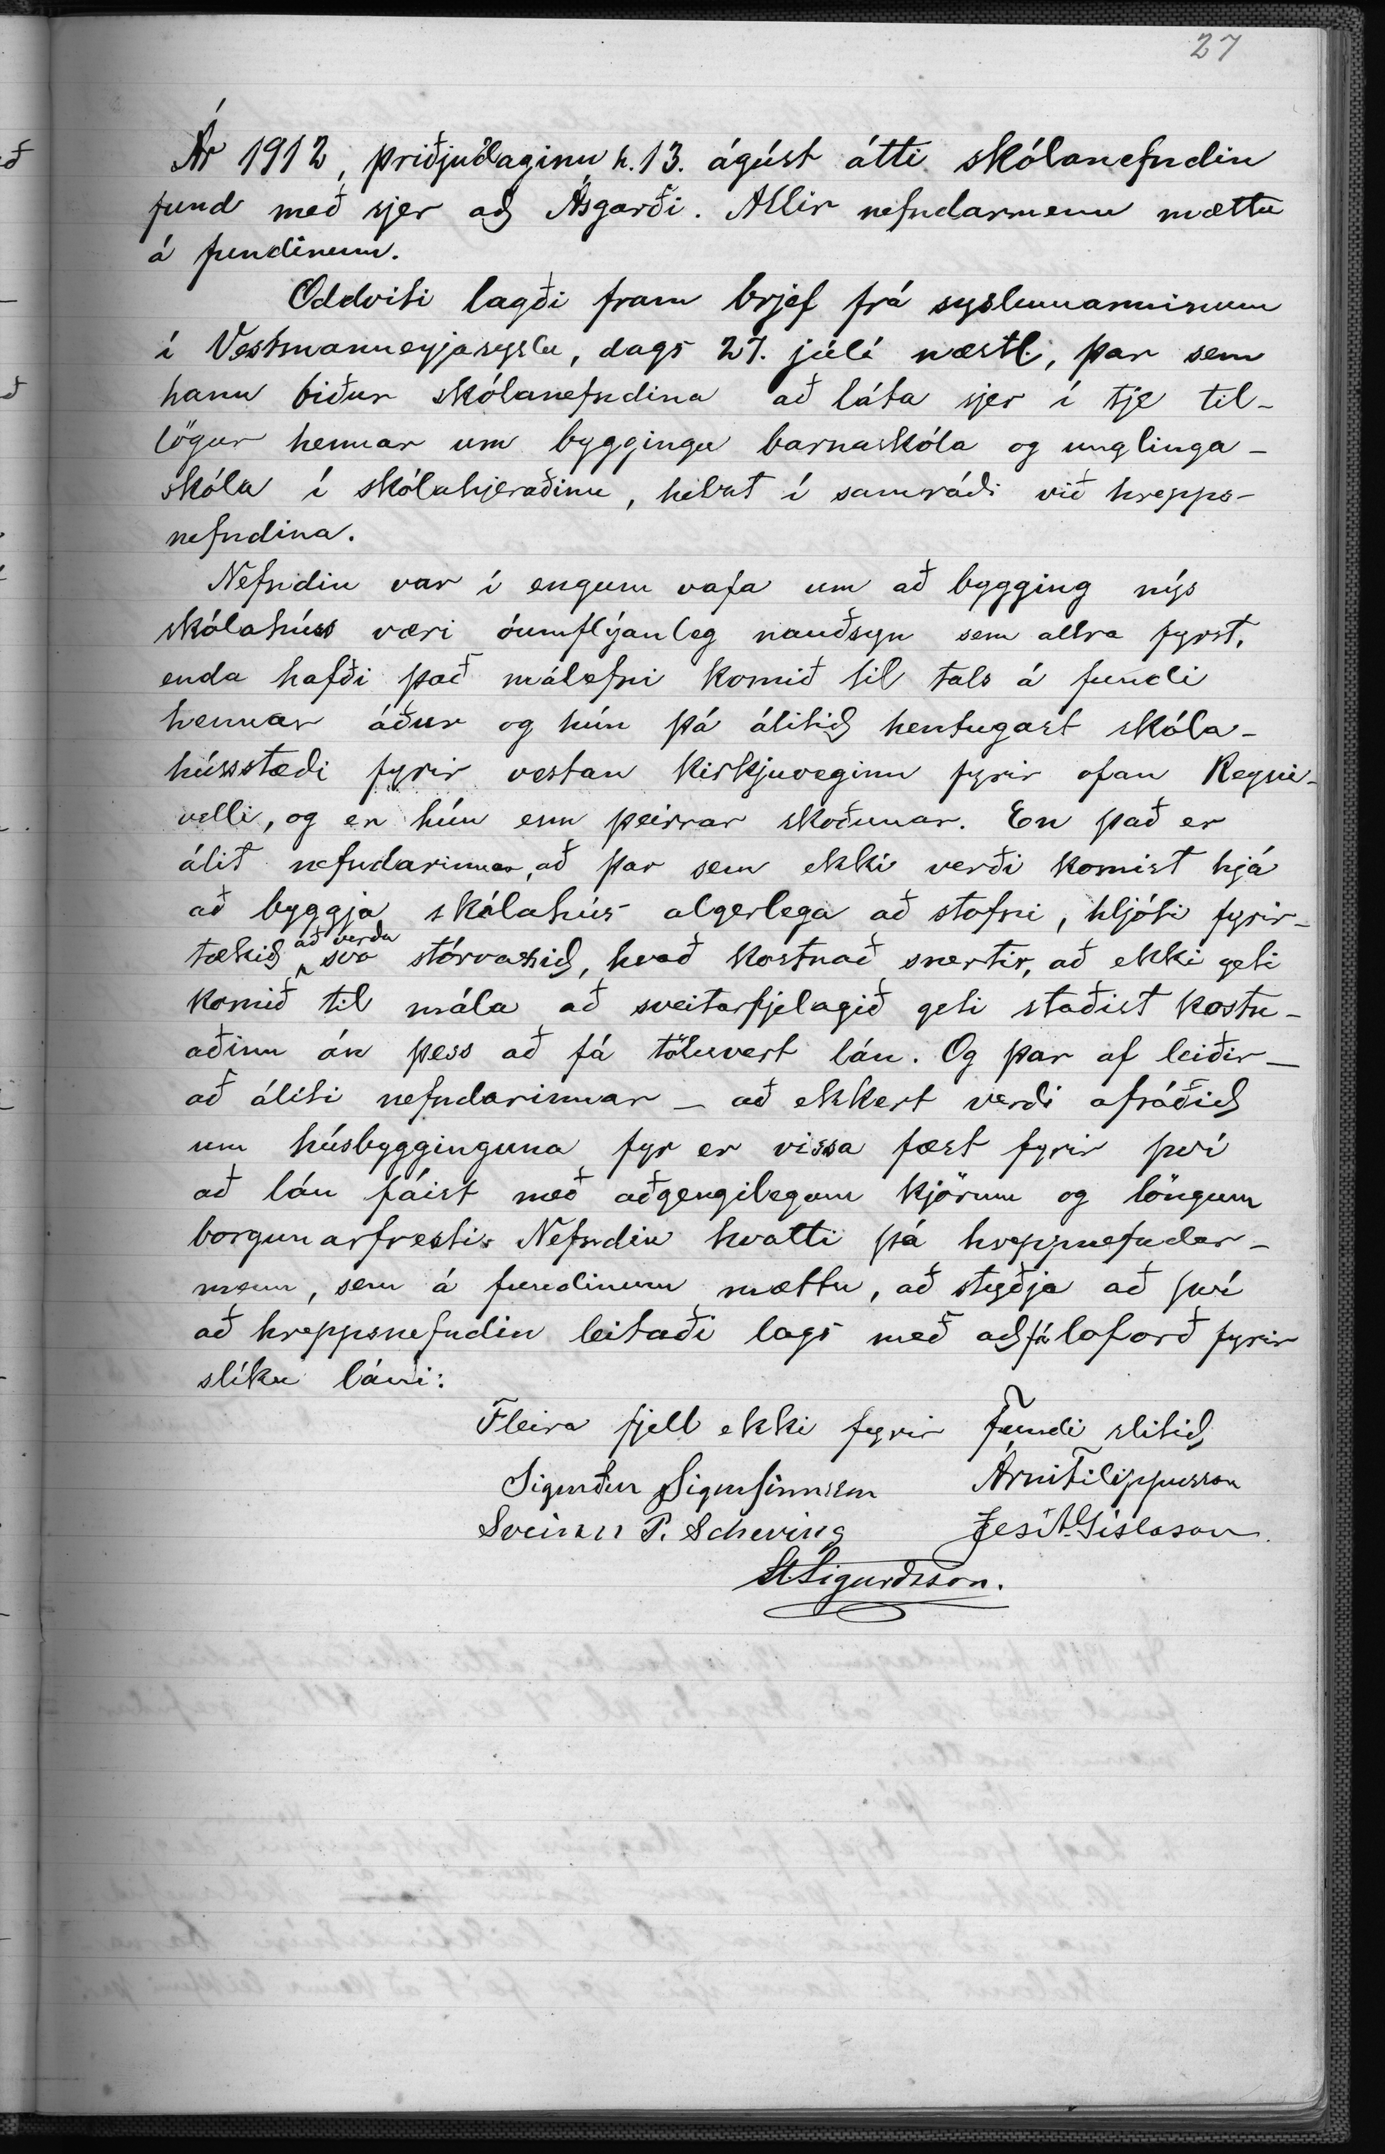 27
Ár 1912, þriðjudaginn h. 13. ágúst átti skólanefndin
fund með sjer að Ásgarði. Allir nefndarmenn mættu
á fundinum.
Oddviti lagði fram brjef frá syslumanninum
í Vestmannueyjasyslu, dags 27. júlí næstl., þar sem
hann biður skólanefndina að láta sjer í tje til-
lögur hennar um byggingu barnaskóla og unglinga-
skóla í skólahjeraðinu, helst í samráði við hrepps-
nefndina.
Nefndin var í engum vafa um að bygging nýs
skólahúss væri óumflýanleg nauðsyn sem allra fyrst,
enda hafði það málefni komið til tals á fundi
hennar áður og hún þá álitið hentugast skóla-
hússtæði fyrir vestan kirkjuveginn fyrir ofan Reyni-
velli, og er hún enn þeirrar skoðunar. En það er
álit nefndarinnar, að þar sem ekki verði komist hjá
að byggja skólahús algerlega að stofni, hljóti fyrir-
tækið að verða svo stórvaxið, hvað kostnað snertir, að ekki geti
komið til mála að sveitarfjelagið geti staðist kostn-
aðinn án þess að fá töluvert lán. Og þar af leiðir -
að áliti nefndarinnar - að ekkert verði afráðið
um húsbygginguna fyr er vissa fæst fyrir því
að lán fáist með aðgengilegum kjörum og löngum
borgunarfresti. Nefndin hvatti þá hreppnefndar-
menn, sem á fundinum mættu, að styðja að því
að hreppsnefndin leitaði lags með að fá loforð fyrir
slíku láni:
Fleira fjell ekki fyrir Fundi slitið
Sigurður Sigurfinnsson Árni Filippusson
Sveinn P. Scheving Jes A. Gíslason.
St. Sigurðsson.